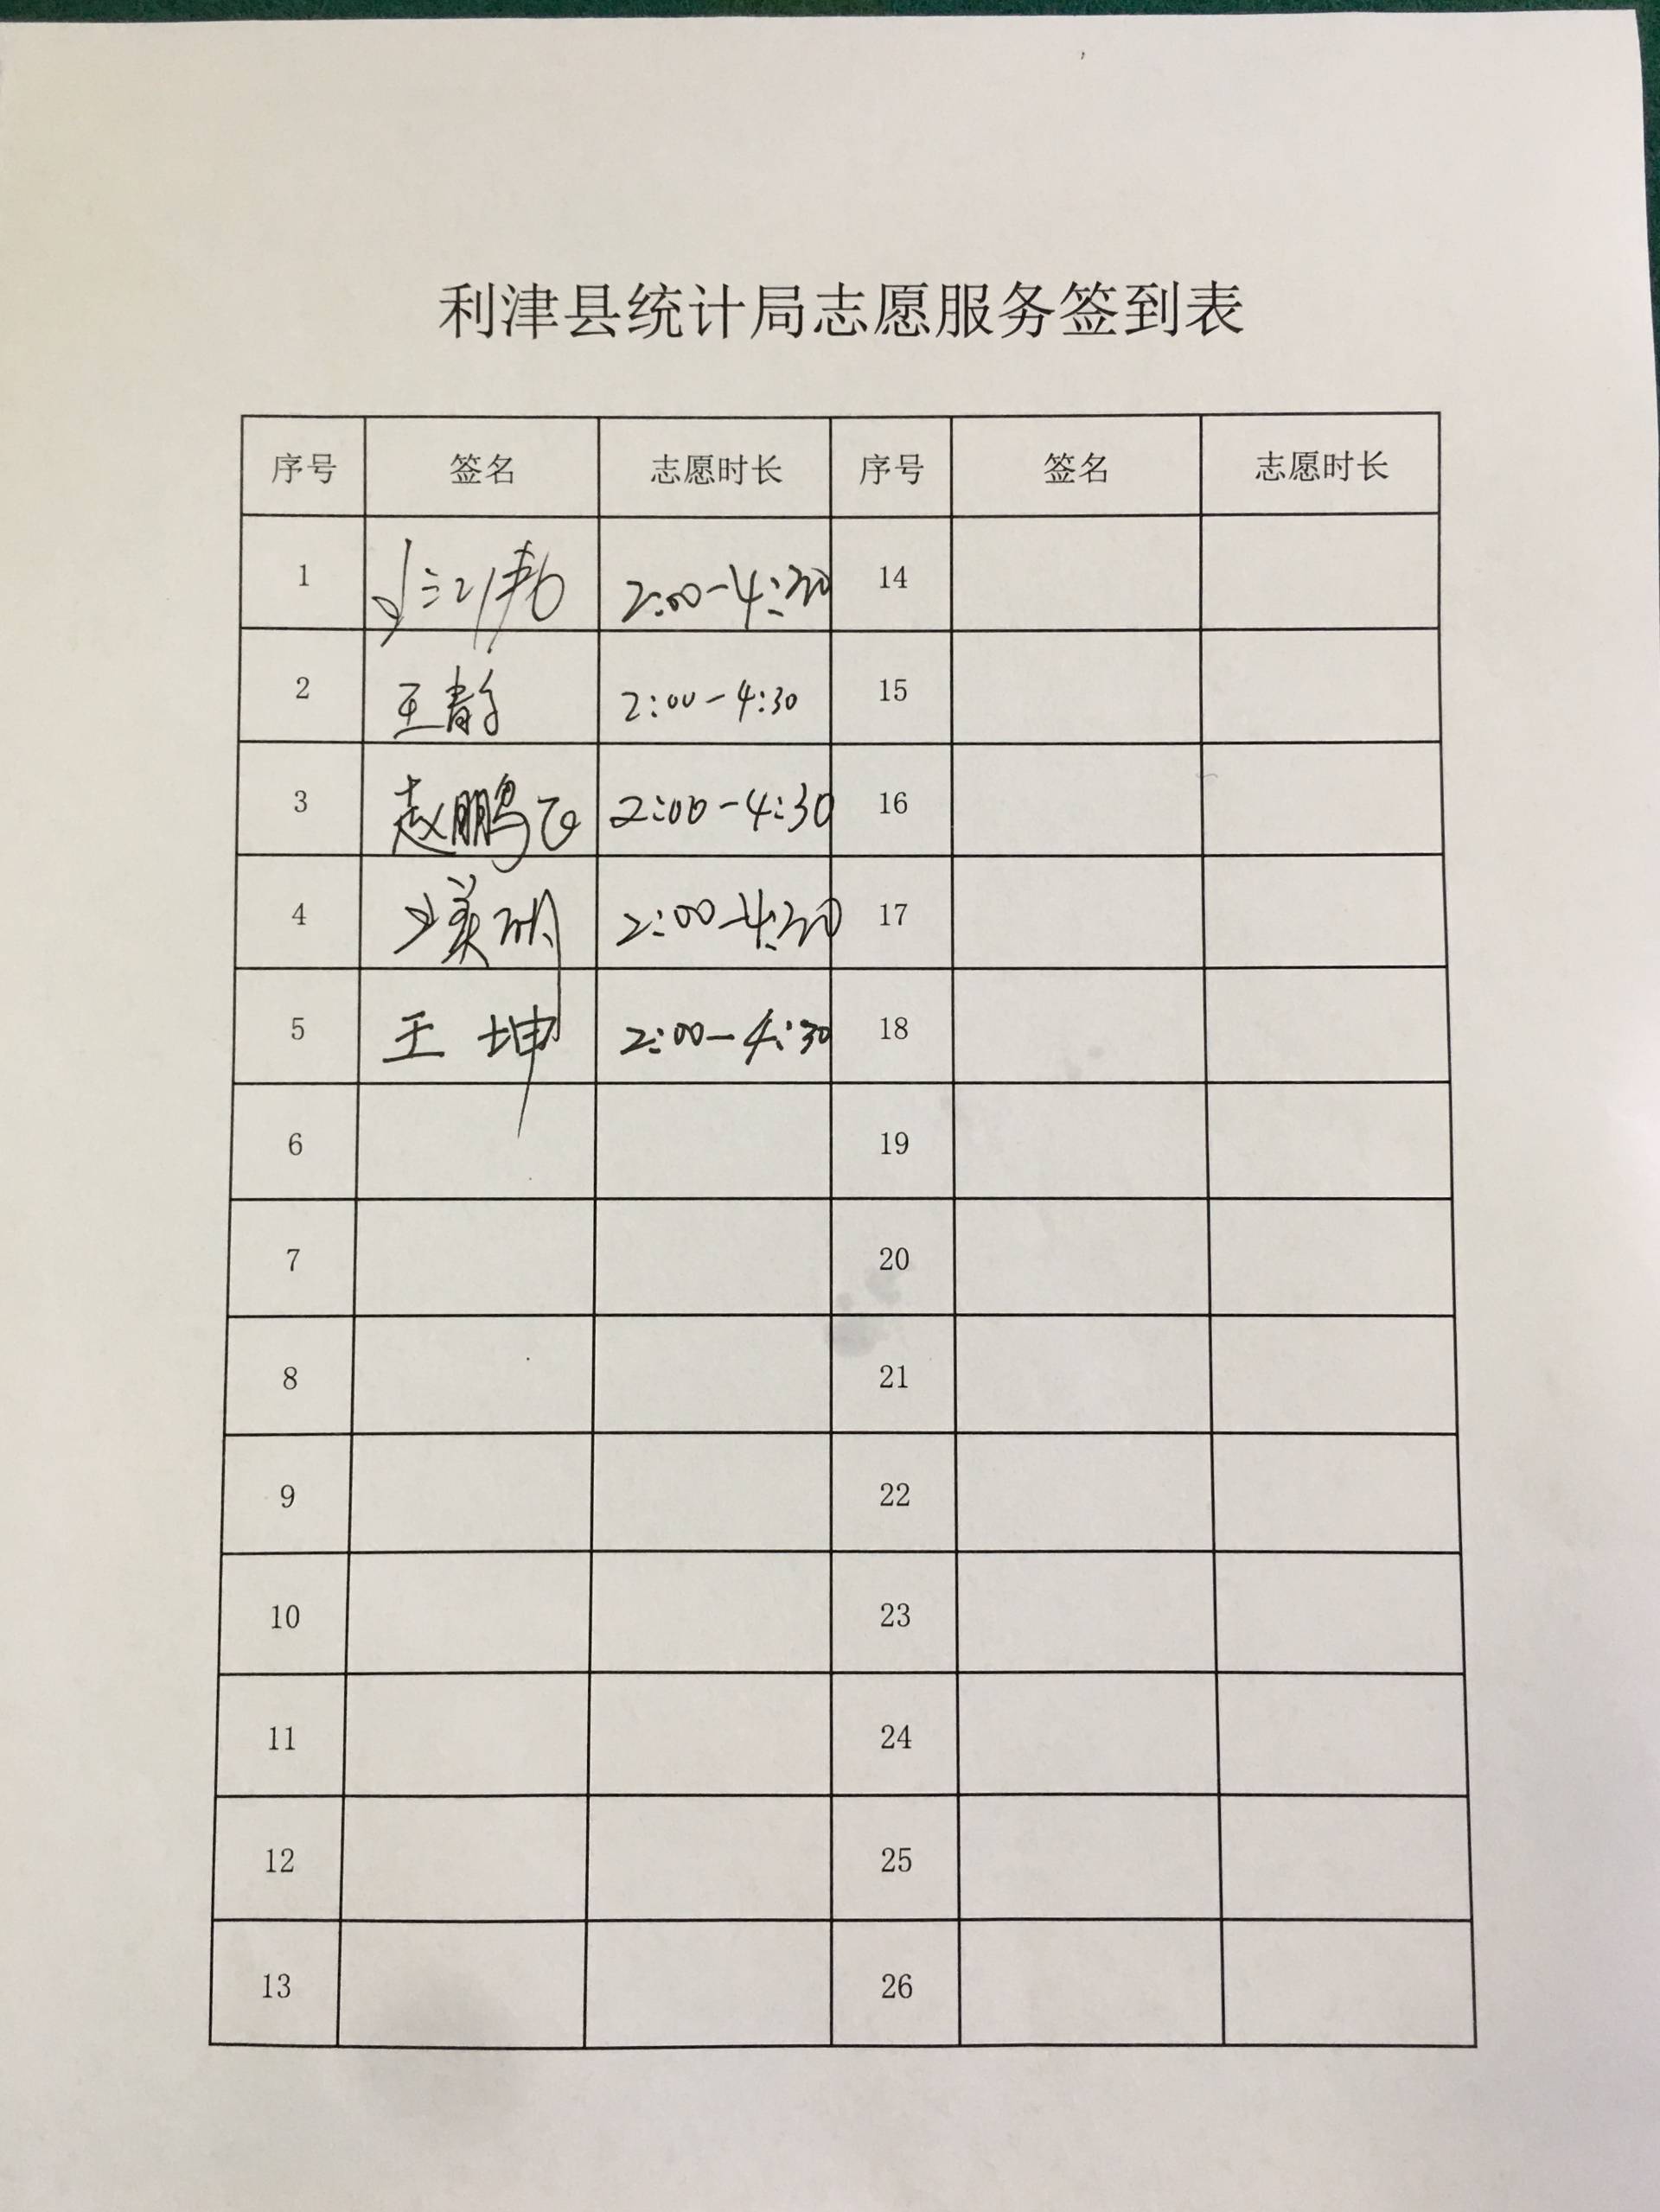 利津县统计局志愿服务签到表
序号 签名 志愿时长 序号 签名 志愿时长
1 2:00-4:30 14
2 王静 2:00-4:30 15
3 赵鹏飞 2:00-4:30 16
4 2:00-4:30 17
5 王坤 2:00-4:30 18
6 19
7 20
8 21
9 22
10 23
11 24
12 25
13 26